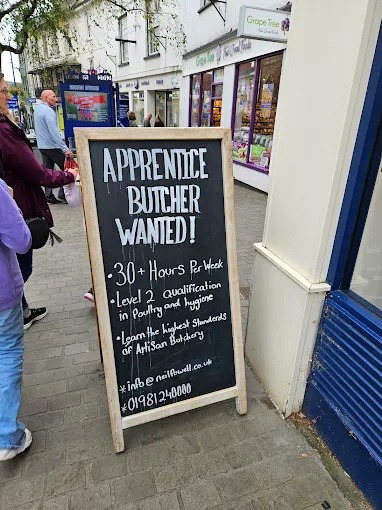 Grape Tree
APPRENTICE
BUTCHER
WANTED!
• 30+ Hours Per Week
• Level 2 qualification
in Poultry and hygiene
• Learn the highest Standards
of Artisan Butchery
* info@neilpowell.co.uk
* 01981240000